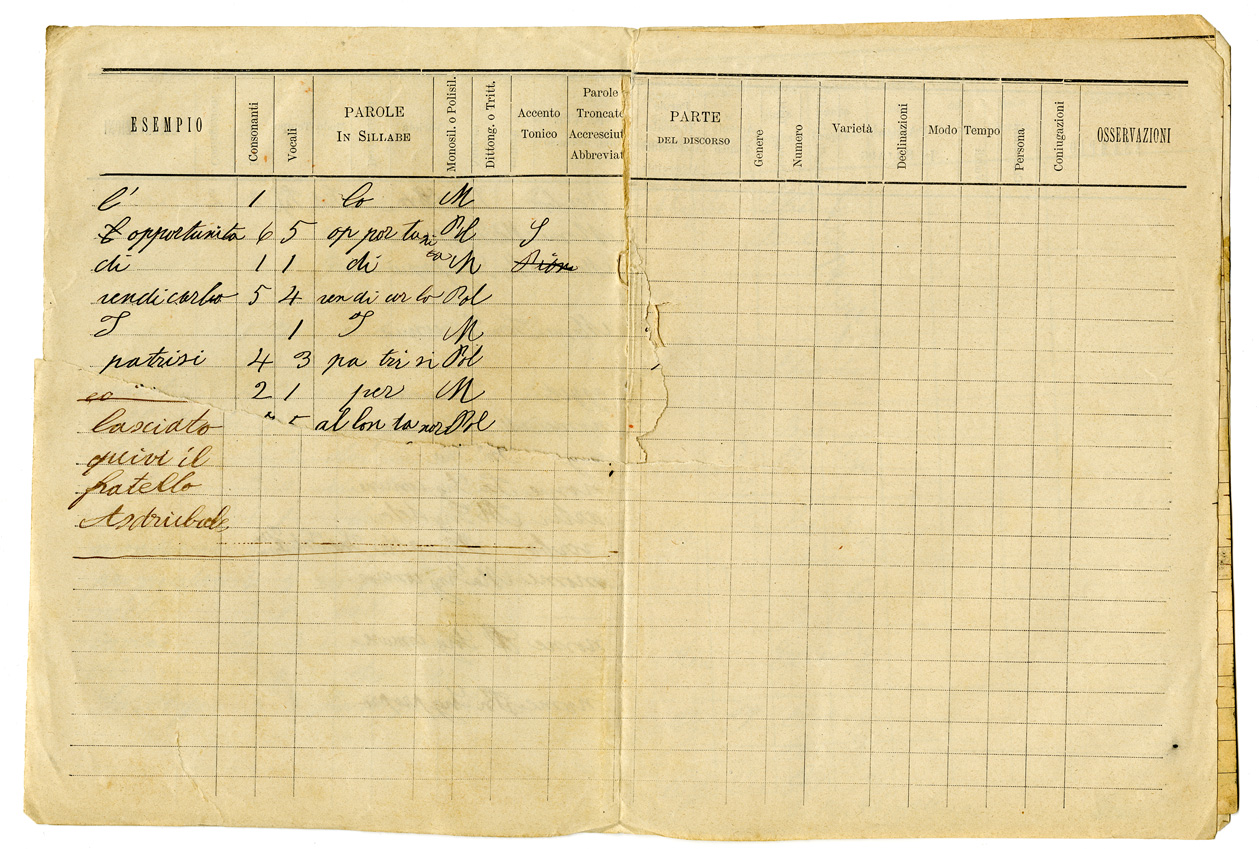 ESEMPIO Consonanti Vocali PAROLE IN SILLABE Monosil. o Polisil. Dittong. o Tritt. Accento Tonico Parole Troncate Accresciut Abbreviat PARTE DEL DISCORSO Genere Numero Varietà Declinazioni Modo Tempo Persona Coniugazioni OSSERVAZIONI
l' 1 lo M
opportunita 6 5 op por tu ni ta Pol S
di 1 1 di M
rendicarlo 5 4 ren di car lo Pol
I 1 I M
patrisi 4 3 pa tri si Pol
2 1 per M
lasciato 5 al lon ta nar Pol
quivi il
fratello
Asdrubale